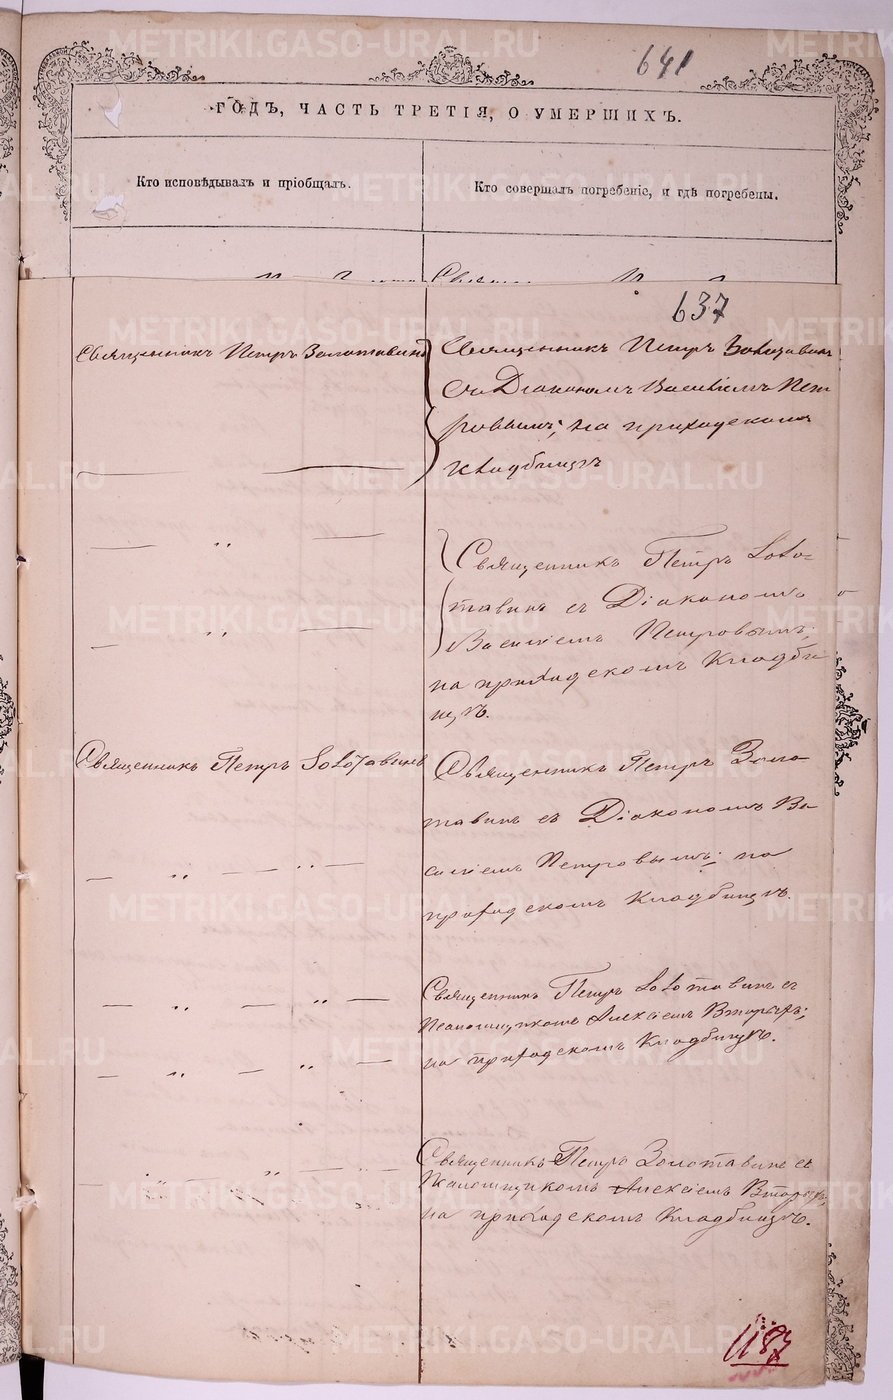 641
ГОДЪ, ЧАСТЬ ТРЕТІЯ, О УМЕРШИХЪ.
Кто исповѣдывалъ и пріобщалъ.
Кто совершалъ погребеніе, и гдѣ погребены.
637
Священникъ Петръ Золотавинъ
Священникъ Петръ Золотавинъ
съ Діакономъ Василіемъ Пет
ровымъ; на приходскомъ
кладбищѣ
Священникъ Петръ Золо=
тавинъ съ Діакономъ
Василіемъ Петровымъ;
на приходскомъ кладби
щѣ.
Священникъ Петръ Золотавинъ
Священникъ Петръ Золо
тавинъ съ Діакономъ Ва
силіемъ Петровымъ; на
приходскомъ кладбищѣ.
Священникъ Петръ Золотавинъ съ
Псаломщикомъ Алексіемъ
на приходскомъ кладбищѣ.
Священникъ Петръ Золотавинъ съ
Псаломщикомъ Алексіемъ
на приходскомъ кладбищѣ.
1187
METRIKI.GASO-URAL.RU